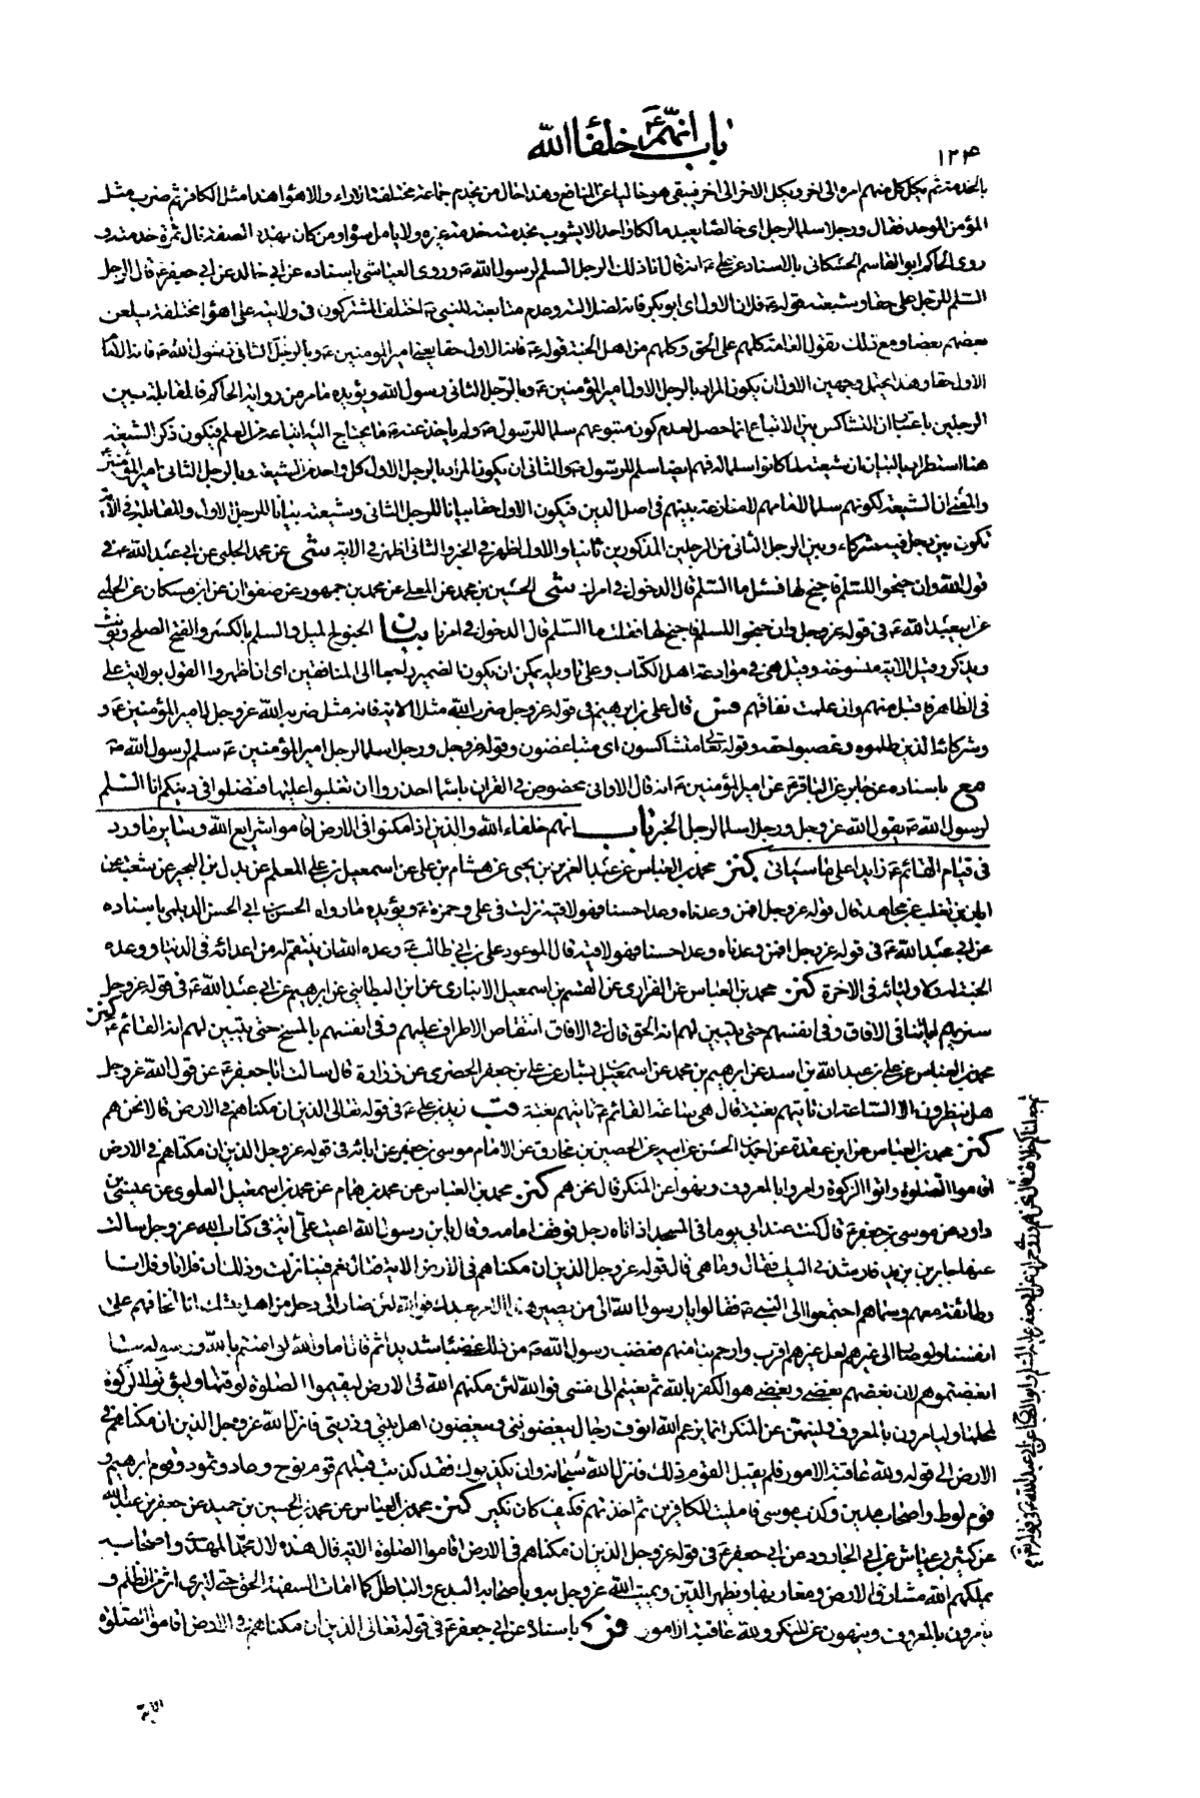 باب انهم ع خلفاء الله
١٢٤
بالخدمة ثم يكل كل منهم امره الى اخر ويكل الاخر الى اخر فيبقى هو خاليا عن المنافع وهذا حال من يخدم جماعة مختلفة الاراء والاهواء هذا مثل الكافر ثم ضرب مثل
المؤمن الموحد فقال ورجلا سلما لرجل اى خالصا يعبد مالكا واحدا لا يشوب بخدمته خدمة غيره ولا يامل سواه ومن كان بهذه الصفة نال ثمرة خدمته و
روى الحاكم ابو القاسم الحسكانى بالاسناد عن على ع انه قال انا ذلك الرجل السلم لرسول الله ص وروى العياشى باسناده عن ابى خالد عن ابى جعفر ع قال الرجل
السلم للرجل على حقا وشيعته قوله ع فلان الاول اى ابو بكر فانه لضلالته وعدم متابعته للنبى ص اختلف المشتركون فى ولايته على اهواء مختلفة يلعن
بعضهم بعضا ومع ذلك تقول العامة كلهم على الحق وكلهم من اهل الجنة قوله ع فانه الاول حقا يعنى امير المؤمنين ع وبالرجل الثانى رسول الله ص فانه الامام
الاول حقا وهذا يحتمل وجهين الاول ان يكون المراد بالرجل الاول امير المؤمنين ع وبالرجل الثانى رسول الله ويؤيده ما مر من رواية الحاكم فالمقابلة بين
الرجلين باعتبار ان التشاكس بين الاتباع انما حصل لعدم كون متبوعهم سلما للرسول ص ولم ياخذ عنه ص ما يحتاج اليه اتباعه من العلم فيكون ذكر الشيعة
هنا استطرادا لبيان ان شيعته لما كانوا سلما له فهم ايضا سلم للرسول ص والثانى ان يكون المراد بالرجل الاول كل واحد من الشيعة وبالرجل الثانى امير المؤمنين ع
والمعنى ان الشيعة لكونهم سلما لامامهم لا منازعة بينهم فى اصل الدين فيكون الاول حقا بيانا للرجل الثانى وشيعته بيانا للرجل الاول والمقابلة فى الاية
تكون بين رجل فيه شركاء وبين الرجل الثانى من الرجلين المذكورين ثانيا والاول اظهر فى الخبر والثانى اظهر فى الاية شى عن محمد الحلبى عن ابى عبد الله ع فى
قول الله وان جنحوا للسلم فاجنح لها فسئل ما السلم قال الدخول فى امرك شى الحسين بن محمد عن المعلى عن محمد بن جمهور عن صفوان عن ابن مسكان عن الحلبى
عن ابى عبد الله ع فى قوله عز وجل وان جنحوا للسلم فاجنح لها قلت ما السلم قال الدخول فى امرنا بيان الجنوح الميل والسلم بالكسر والفتح الصلح ويؤنث
ويذكر وقيل الاية منسوخة وقيل هى فى موادعة اهل الكتاب وعلى تاويله يمكن ان يكون الضمير راجعا الى المنافقين اى ان اظهروا القول بولاية على
فى الظاهر فاقبل منهم وان علمت نفاقهم فس قال على بن ابرهيم فى قوله عز وجل ضرب الله مثلا الاية فانه مثل ضربه الله عز وجل لامير المؤمنين ع و
وشركائه الذين ظلموه وغصبوا حقه وقوله تعالى متشاكسون اى متباغضون وقوله عز وجل ورجلا سلما لرجل امير المؤمنين ع سلم لرسول الله ص
مع باسناده عن جابر عن الباقر ع عن امير المؤمنين ع انه قال الا وانى مخصوص فى القران باسماء احذروا ان تغلبوا عليها فتضلوا فى دينكم انا السلم
لرسول الله ص يقول الله عز وجل ورجلا سلما لرجل الخبر باب انهم خلفاء الله والذين اذا مكنوا فى الارض اقاموا شرايع الله وساير ما ورد
فى قيام القائم ع زايدا على ما سياتى كنز محمد بن العباس عن عبد العزيز بن يحيى عن هشام بن على عن اسمعيل بن على المعلم عن بدل بن البحير عن شعبة عن
ابان بن تغلب عن مجاهد قال قوله عز وجل افمن وعدناه وعدا حسنا فهو لاقيه نزلت فى على وحمزة ع ويؤيده ما رواه الحسن بن ابى الحسن الديلمى باسناده
عن ابى عبد الله ع فى قوله عز وجل افمن وعدناه وعدا حسنا فهو لاقيه قال الموعود على بن ابى طالب ع وعده الله ان ينتقم له من اعدائه فى الدنيا ووعده
الجنة له ولاوليائه فى الاخرة كنز محمد بن العباس عن الفزارى عن القسم بن اسمعيل الانبارى عن ابن البطاينى عن ابرهيم عن ابى عبد الله ع فى قوله عز وجل
سنريهم اياتنا فى الافاق وفى انفسهم حتى يتبين لهم انه الحق قال فى الافاق انتقاص الاطراف عليهم وفى انفسهم بالمسخ حتى يتبين لهم انه القائم ع كنز
محمد بن العباس عن على بن عبد الله بن اسد عن ابرهيم بن محمد عن اسمعيل بن بشار عن على بن جعفر الحضرمى عن زرارة قال سالت ابا جعفر ع عن قول الله عز وجل
هل ينظرون الا الساعة ان تاتيهم بغتة قال هى ساعة القائم ع تاتيهم بغتة قب زيد بن على ع فى قوله تعالى الذين ان مكناهم فى الارض قال نحن هم
كنز محمد بن العباس عن ابن عقدة عن احمد بن الحسن عن ابيه عن الحصين بن مخارق عن الامام موسى بن جعفر عن ابائه فى قوله عز وجل الذين ان مكناهم فى الارض
اقاموا الصلوة واتوا الزكوة وامروا بالمعروف ونهوا عن المنكر قال نحن هم كنز محمد بن العباس عن محمد بن همام عن محمد بن اسمعيل العلوى عن عيسى بن
داود عن موسى بن جعفر ع قال كنت عند ابى يوما فى المسجد اذ اتاه رجل فوقف امامه وقال يابن رسول الله اعيت على اية فى كتاب الله عز وجل سالت
عنها جابر بن يزيد فارشدنى اليك فقال وما هى قال قوله عز وجل الذين ان مكناهم فى الارض الاية فقال نعم فينا نزلت وذلك ان فلانا وفلانا
وطائفة معهم وسماهم اجتمعوا الى النبى ص فقالوا يا رسول الله الى من يصير هذا الامر بعدك فوالله لئن صار الى رجل من اهل بيتك انا لنخافهم على
انفسنا ولو صار الى غيرهم لعل غيرهم اقرب وارحم بنا منهم فغضب رسول الله ص من ذلك غضبا شديدا ثم قال اما والله لو امنتم بالله وبرسوله ما
ابغضتموهم لان بغضهم بغضى وبغضى هو الكفر بالله ثم نعيتم الى نفسى فوالله لئن مكنهم الله فى الارض ليقيموا الصلوة لوقتها وليؤتوا الزكوة
لمحلها وليامرن بالمعروف ولينهن عن المنكر انما يرغم الله انوف رجال يبغضونى ويبغضون اهل بيتى وذريتى فانزل الله عز وجل الذين ان مكناهم فى
الارض الى قوله ولله عاقبة الامور فلم يقبل القوم ذلك فانزل الله سبحانه وان يكذبوك فقد كذبت قبلهم قوم نوح وعاد وثمود وقوم ابرهيم و
قوم لوط واصحاب مدين وكذب موسى فامليت للكافرين ثم اخذتهم فكيف كان نكير كنز محمد بن العباس عن محمد بن الحسين بن حميد عن جعفر بن عبد الله
عن كثير بن عياش عن ابى الجارود عن ابى جعفر ع فى قوله عز وجل الذين ان مكناهم فى الارض اقاموا الصلوة الاية قال هذه لال محمد المهدى واصحابه
يملكهم الله مشارق الارض ومغاربها ويظهر الدين ويميت الله عز وجل به وباصحابه البدع والباطل كما امات السفهة الحق حتى لا يرى اثر من الظلم و
يامرون بالمعروف وينهون عن المنكر ولله عاقبة الامور فر باسناده عن ابى جعفر ع فى قوله تعالى الذين ان مكناهم فى الارض اقاموا الصلوة
الاية